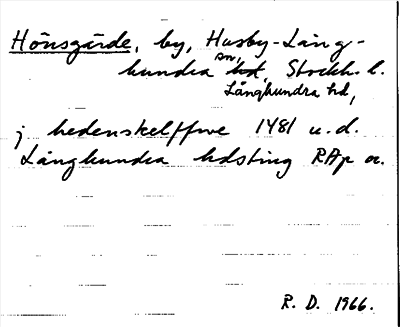 Hönsgärde, by, Husby-Lång-
hundra sn, Stockh. l.
Långhundra hd,
j hedenskelffwe 1481 u.d.
Långhundra hdsting RAp or.
R. D. 1966.